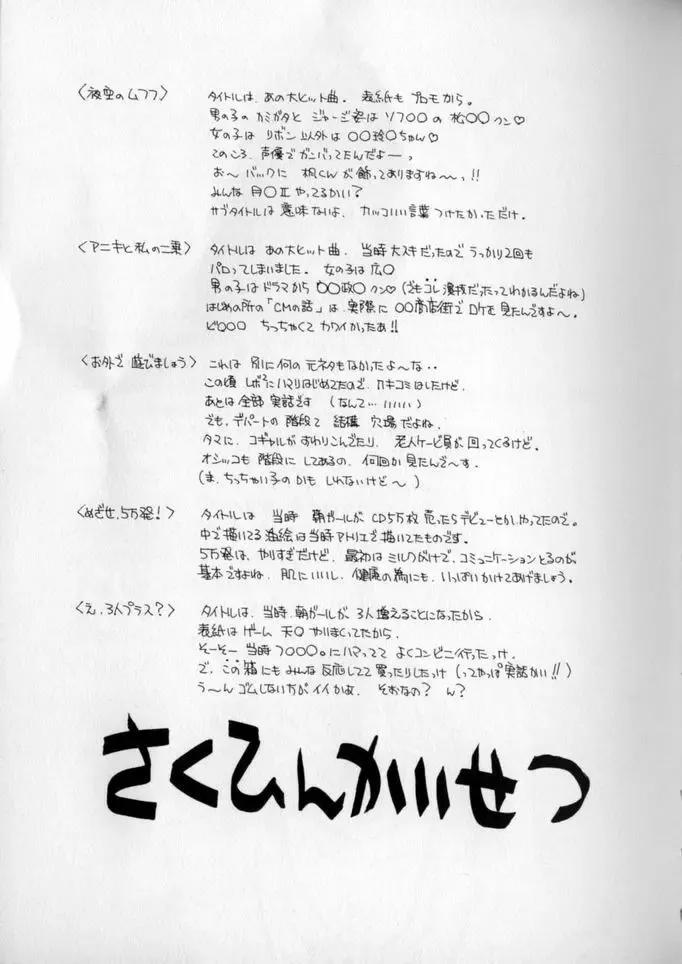 〈夜空のムフフ〉 タイトルは、あの大ヒット曲。表紙も プロモから。
男の子の カミガタと ジャージ姿は ソフ〇〇の 松〇〇クン♡
女の子は リボン以外は 〇〇玲〇ちゃん♡
このころ、声優でガンバってたんだよーっ
お〜 バックに 楓くんが 飾ってありますね〜っ!!
みんな 月〇Ⅱ やってるかい?
サブタイトルは 意味ないよ、カッコいい言葉 つけたかっただけ。
〈アニキと私の二乗〉 タイトルは あの大ヒット曲。当時 大スキだったので うっかり2回も
パロってしまいました。女の子は 広〇
男の子はドラマから 〇〇政〇クン☆(でもコレ漫抜だったってわかるんだよね)
はじめの所の「CMの話」は、実際に 〇〇商店街で ロケを見たんですよ〜。
ビ〇〇〇 ちっちゃくて カワイかったあ!!
〈お外で 遊びましょう〉 これは 別に何の 元ネタもなかったよ〜な・・
この頃 レボ²に ハマりはじめてたので、カキコミはしたけど、
あとは全部 実話です (なんて… いいいい)
でも、デパートの 階段て 結構 穴場だよね。
タマに、コギャルが すわりこんでたり、老人ケービ員が 回ってくるけど。
オシッコも 階段に してあるの、何回か 見たんで〜す。
(ま、ちっちゃい子の かも しれないけど〜)
〈めざせ、5万発!〉 タイトルは 当時 朝ガールが CD5万枚 売ったらデビューとか、やってたので。
中で描いてる 油絵は当時 アトリエで 描いてたものです。
5万発は、やりすぎだけど、最初は ミルクがけで、コミュニケーションとるのが
基本ですよね、肌にいいし、健康の為にも、いっぱいかけてあげましょう。
〈え、3人プラス?〉 タイトルは、当時、朝ガールが、3人 増えることに なったから
表紙は ゲーム 天〇 やりまくってたから
そーそー 当時 フ〇〇〇。にハマってて よくコンビニ行ったっけ
で、この箱にも みんな 反応してて 買ったりしたっけ (ってやっぱ 実話かい!!)
う〜ん ゴムしない方が イイかよ、そおなの? ん?
さくひんかいせつ